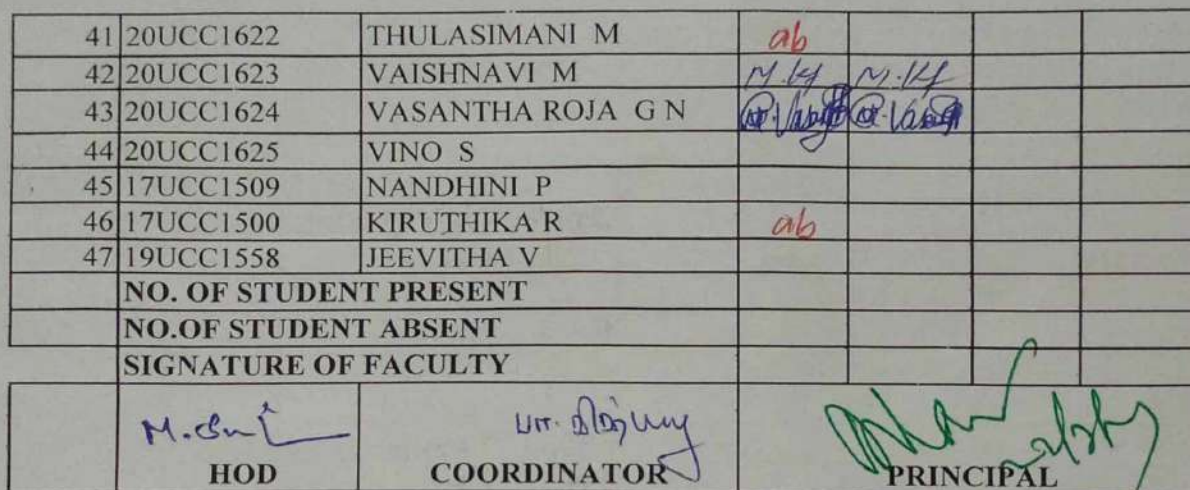 41 20UCC1622 THULASIMANI M ab
42 20UCC1623 VAISHNAVI M
43 20UCC1624 VASANTHA ROJA G N
44 20UCC1625 VINO S
45 17UCC1509 NANDHINI P
46 17UCC1500 KIRUTHIKA R ab
47 19UCC1558 JEEVITHA V
NO. OF STUDENT PRESENT
NO.OF STUDENT ABSENT
SIGNATURE OF FACULTY
HOD COORDINATOR PRINCIPAL